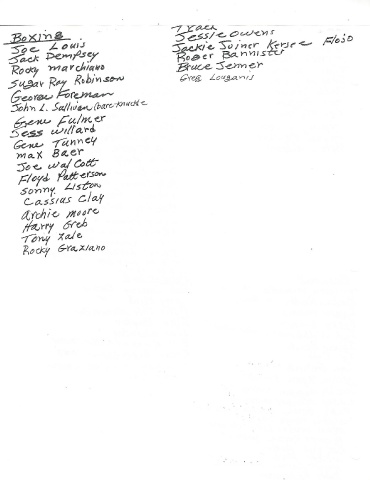 Boxing
Joe Louis
Jack Dempsey
Rocky marchiano
Sugar Ray Robinson
George Foreman
John L. Sullivan (bare knuckle
Gene Fulmer
Jess Willard
Gene Tunney
max Baer
Joe Walcott
Floyd Patterson
Sonny Liston
Cassius Clay
Archie moore
Harry Greb
Tony Zale
Rocky Graziano
Track
Jessie Owens
Jackie Joiner Kersee FloJo
Roger Bannister
Bruce Jenner
Greg Louganis